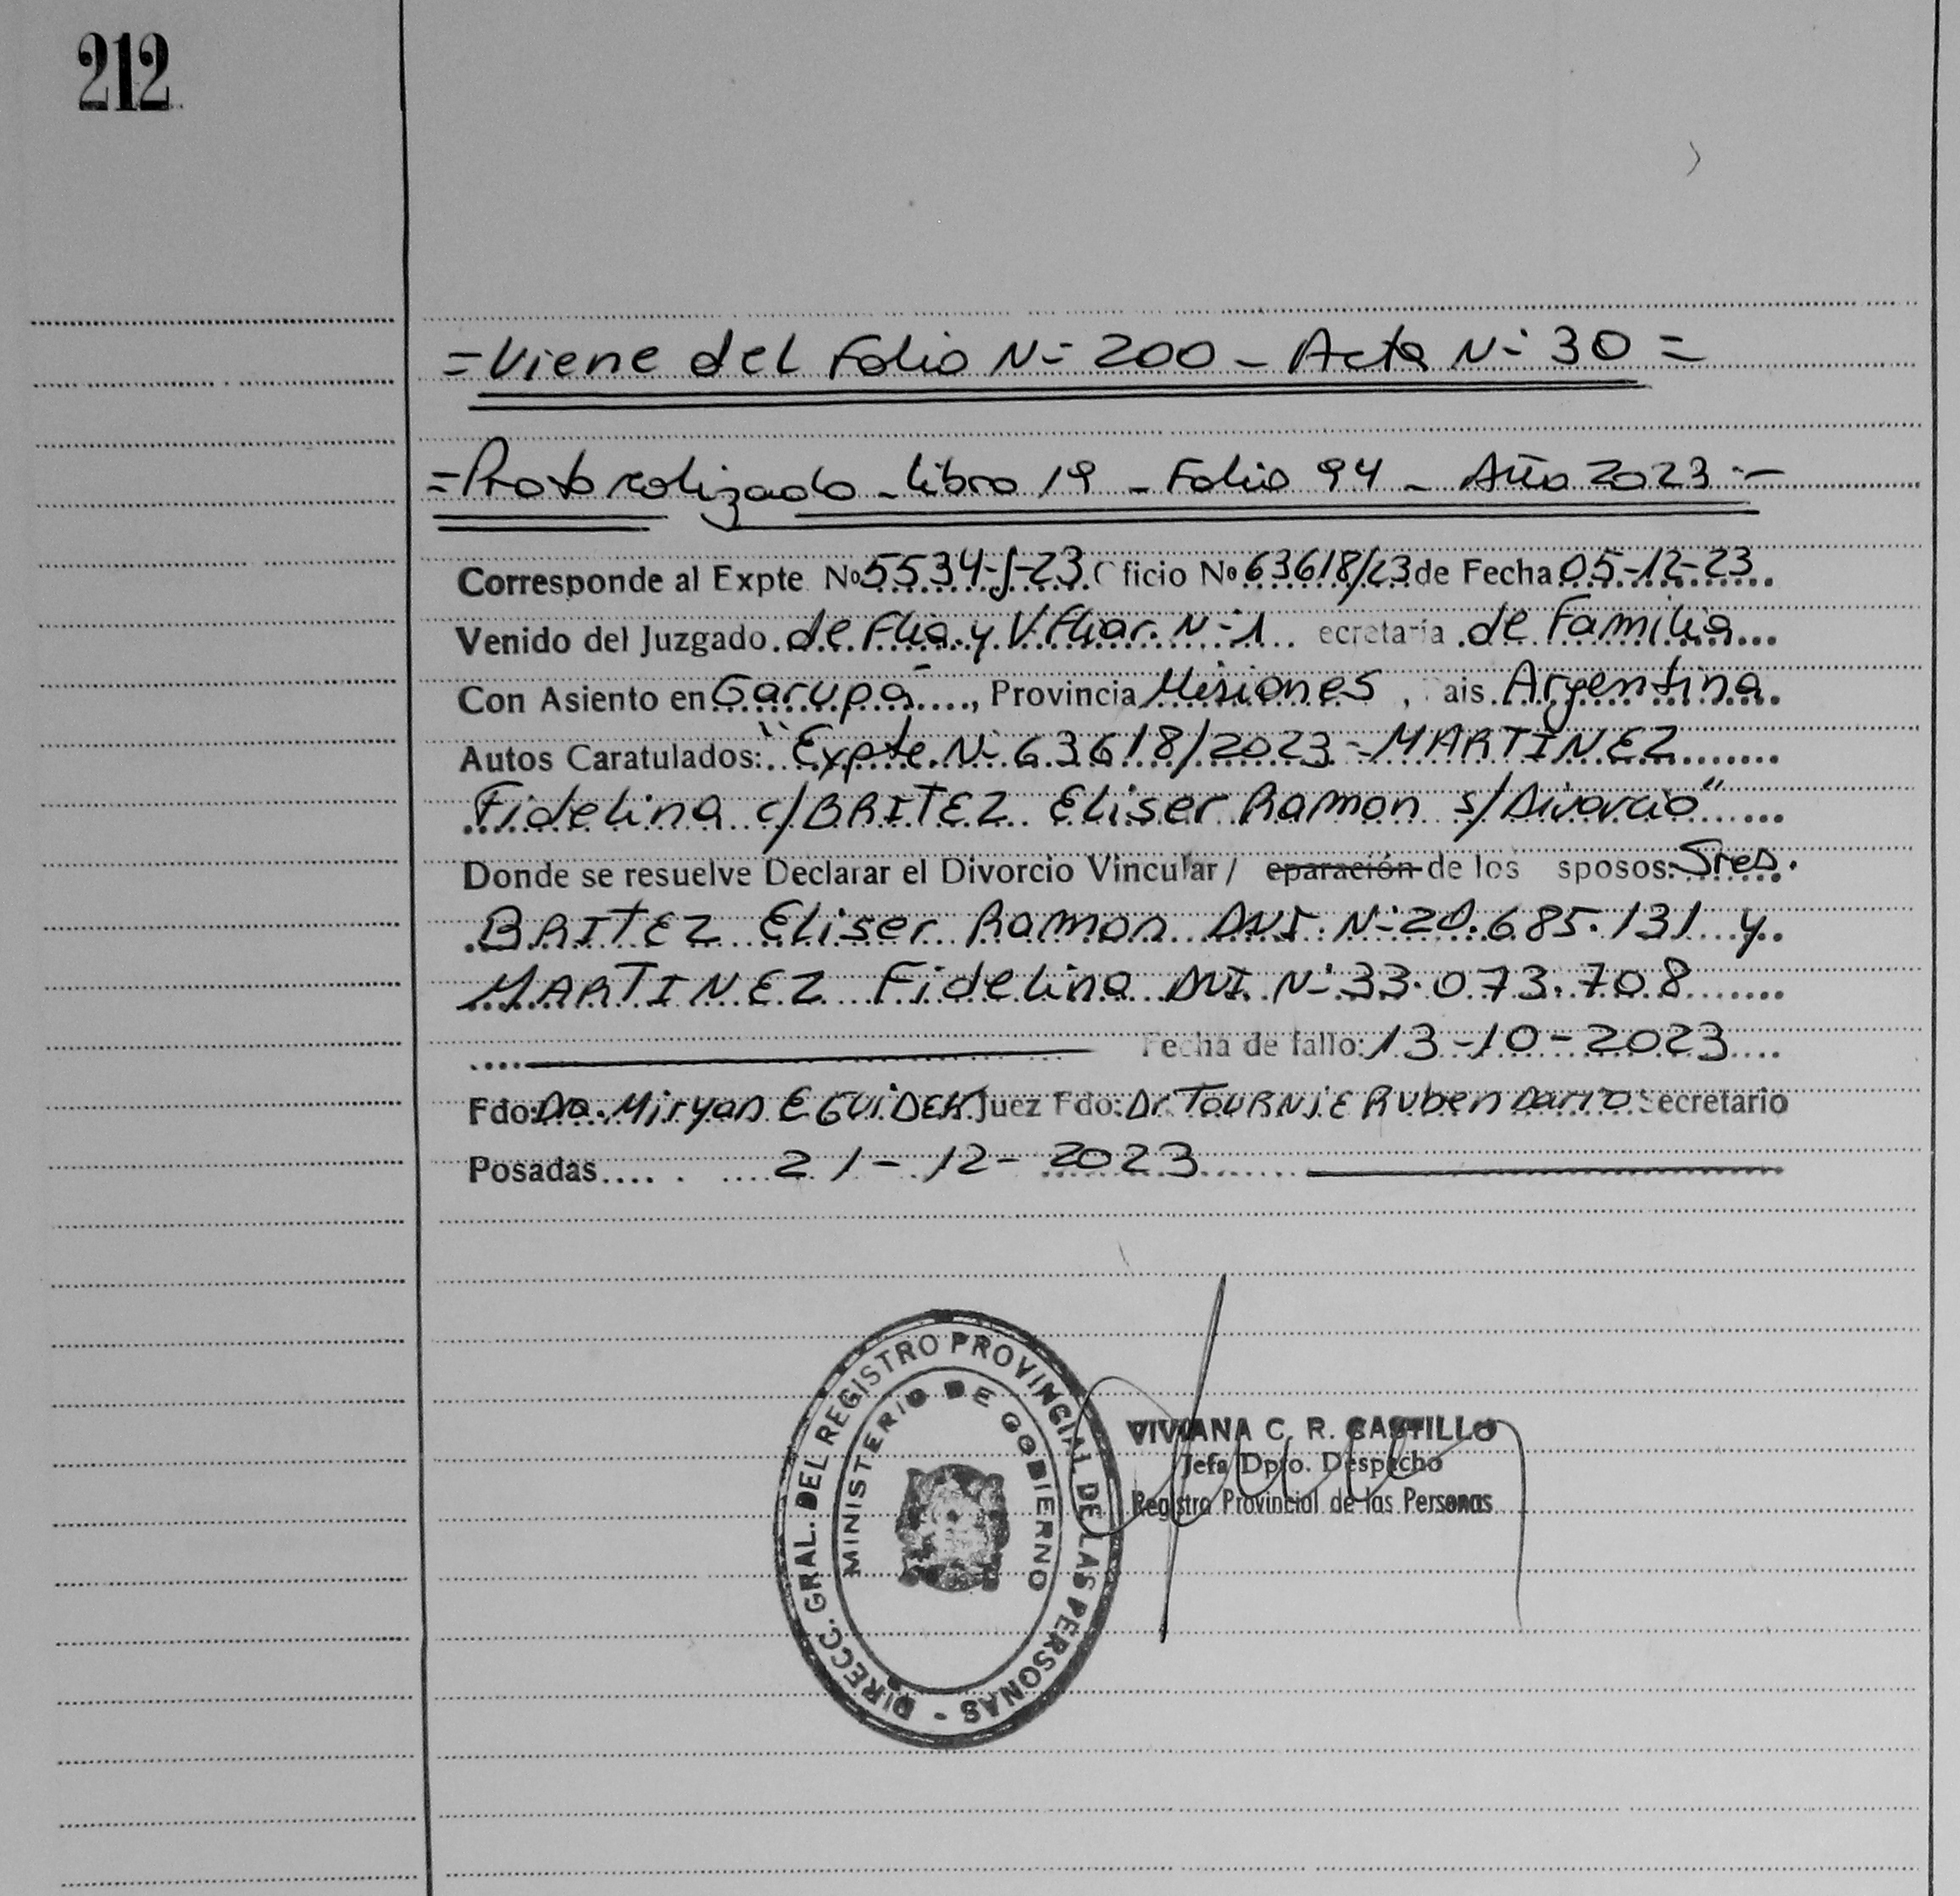 212
=Viene del Folio Nº 200 - Acta Nº 30=
=Protocolizado - Libro 19 - Folio 94 - Año 2023.-
Corresponde al Expte Nº 5534-J-23. Oficio Nº 63618/23 de Fecha 05-12-23
Venido del Juzgado de Flia. y V. Fliar. Nº 1 ecretaría de Familia
Con Asiento en Garupá, Provincia Misiones, ais Argentina.
Autos Caratulados: "Expte. Nº 63618/2023 - MARTINEZ
Fidelina c/ BRITEZ Eliser Ramon s/ Divorcio"
Donde se resuelve Declarar el Divorcio Vincular / eparación de los sposos: Sres.
BRITEZ Eliser Ramon DNI. Nº 20.685.131 y
MARTINEZ Fidelina DNI. Nº 33.073.708
Fecha de fallo: 13-10-2023
Fdo: Dra. Miryan EGUIDEK Juez Fdo: Dr. TOURNIE Ruben Dario Secretario
Posadas 21-12-2023
DIRECC. GRAL. DEL REGISTRO PROVINCIAL DE LAS PERSONAS -
MINISTERIO DE GOBIERNO
VIVIANA C. R. CASTILLO
Jefa Dpto. Despacho
Registro Provincial de las Personas